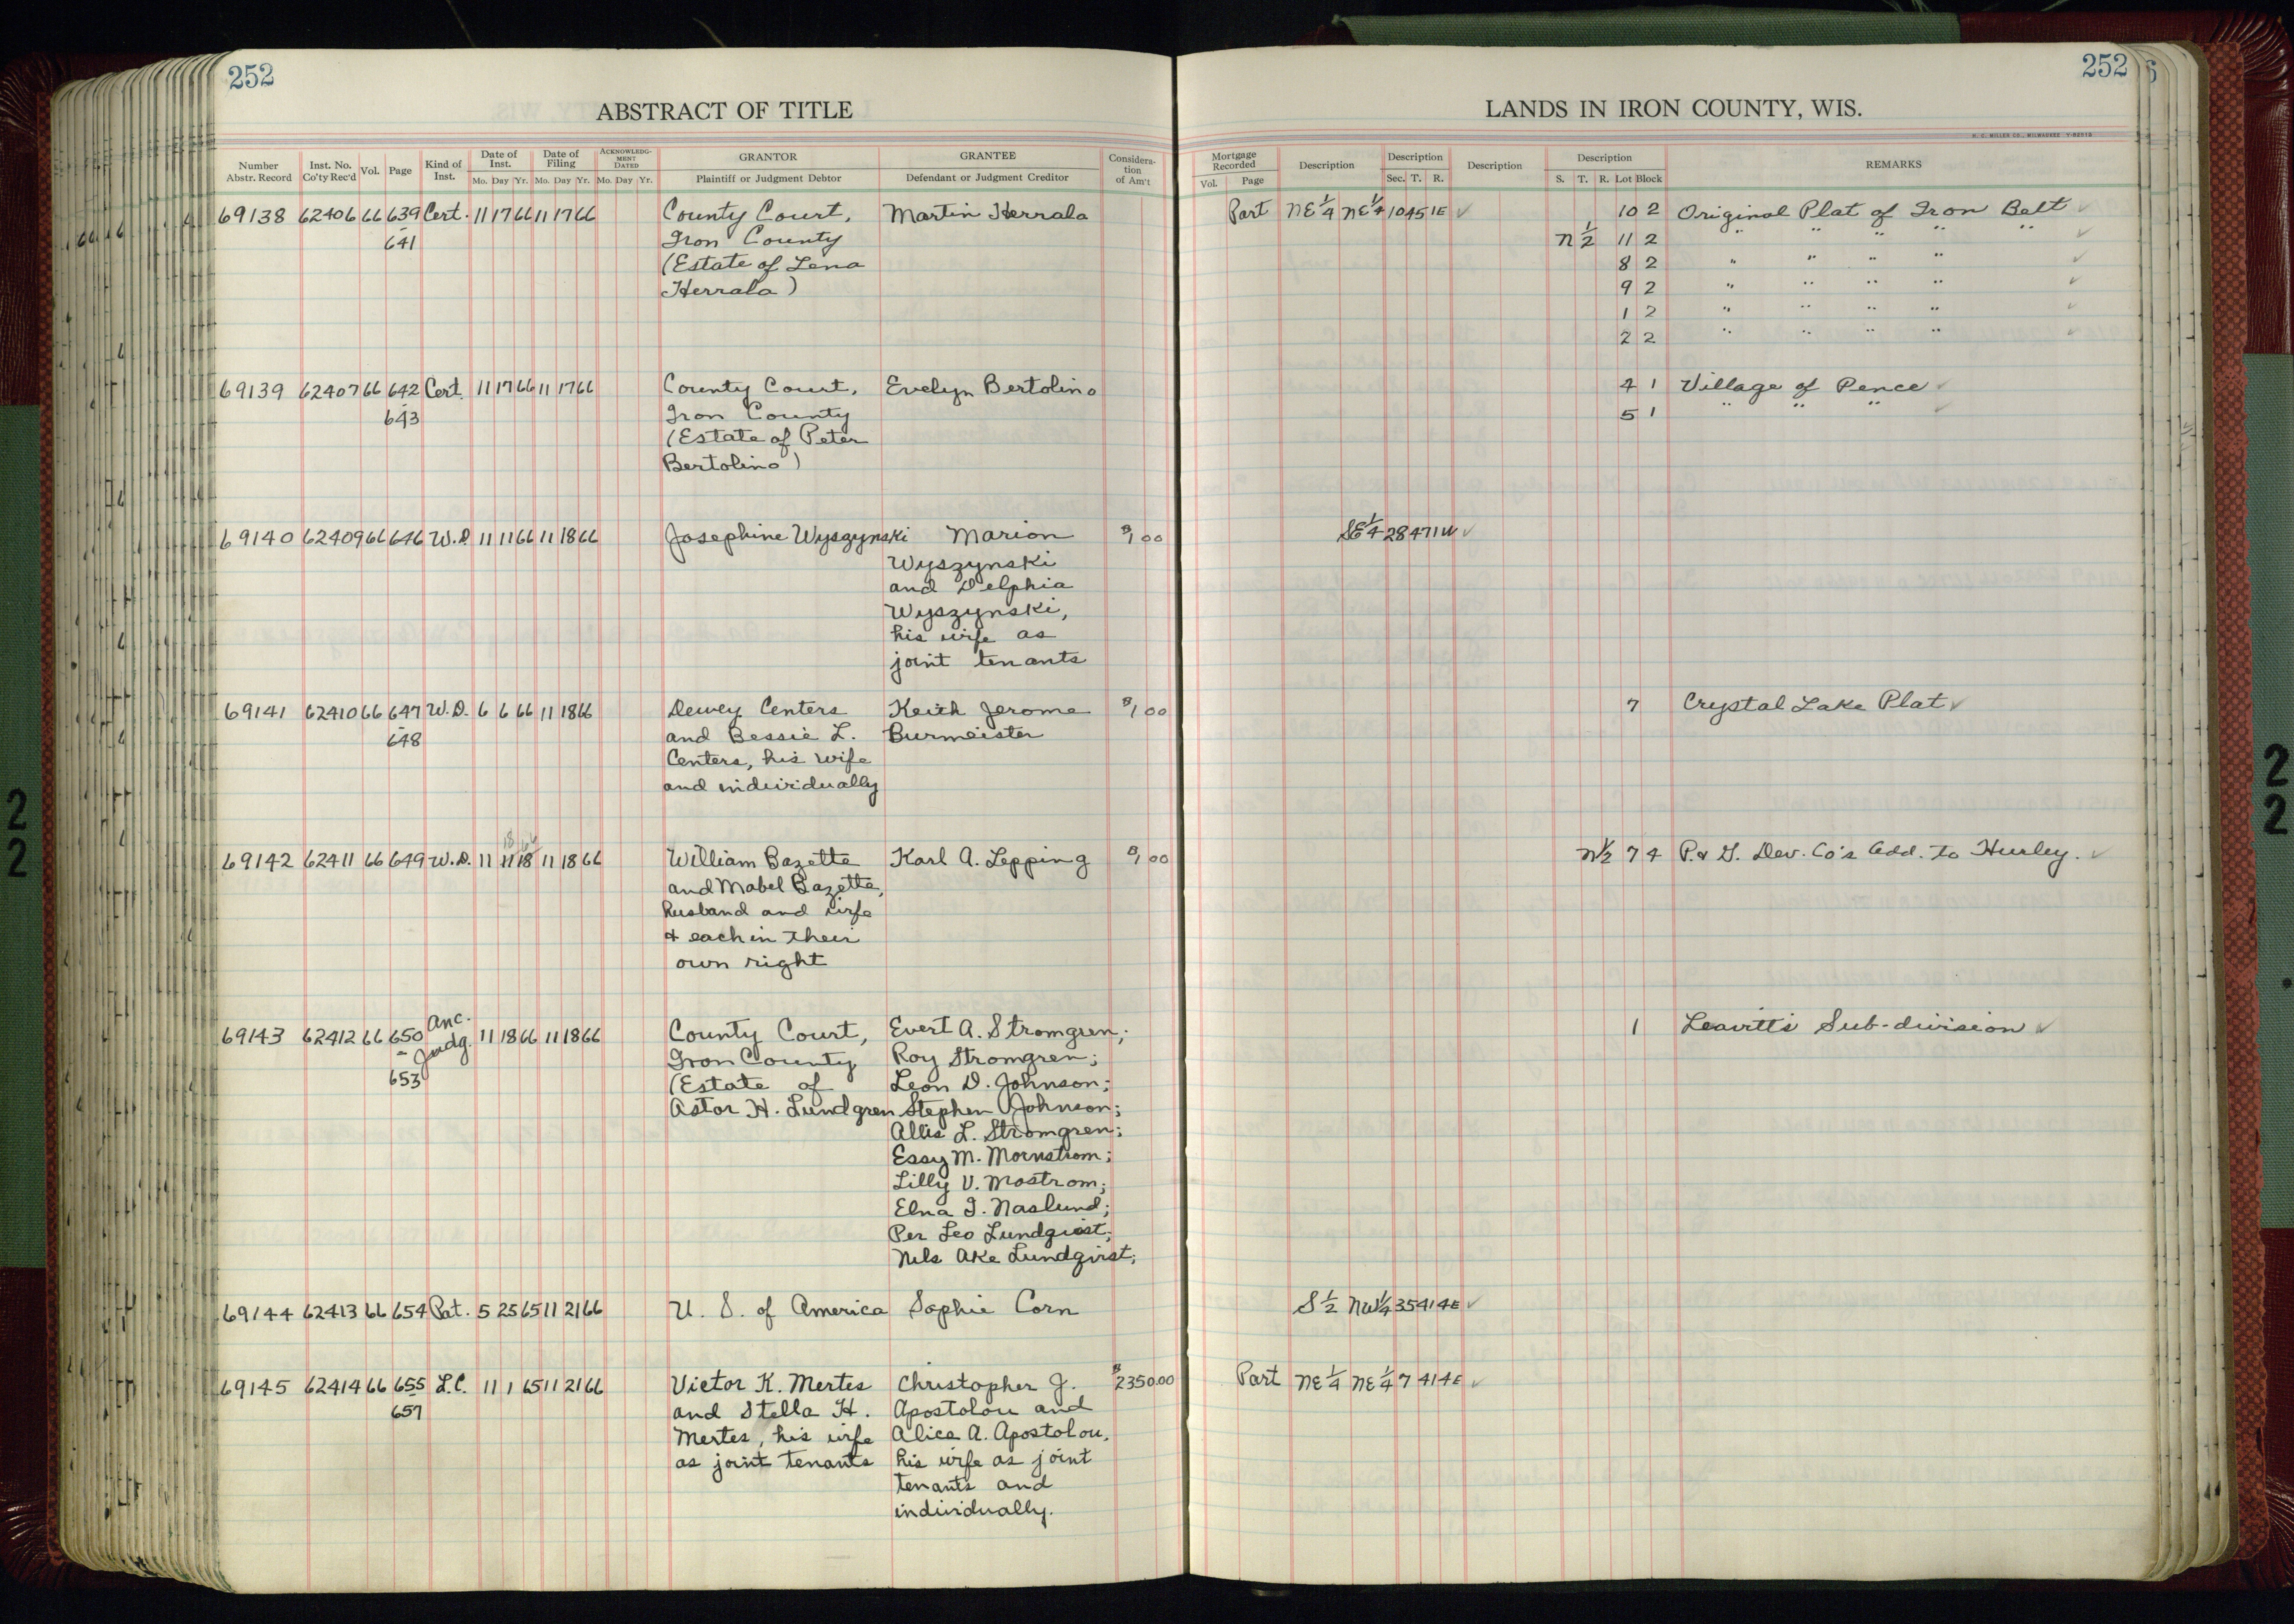 252
252
ABSTRACT OF TITLE
LANDS IN IRON COUNTY, WIS.
H. C. MILLER CO., MILWAUKEE
Number Abstr. Record Inst. No. Co'ty Rec'd Vol. Page Kind of Inst. Date of Inst. Mo. Day Yr. Date of Filing Mo. Day Yr. ACKNOWLEDG-MENT DATED Mo. Day Yr. GRANTOR Plaintiff or Judgment Debtor GRANTEE Defendant or Judgment Creditor Considera-tion of Am't
Mortgage Recorded Vol. Page Description Description Sec. T. R. Description Description S. T. R. Lot Block REMARKS
69138 62406 66 639 Cert. 11 17 66 11 17 66 County Court, Martin Herrala Part NE 1/4 NE 1/4 10 45 1E ✓ 10 2 Original Plat of Iron Belt ✓
- 641 Iron County N 1/2 11 2 " " " " " ✓
(Estate of Lena 8 2 " " " " ✓
Herrala) 9 2 " " " " ✓
1 2 " " " " ✓
2 2 " " " " ✓
69139 62407 66 642 Cert. 11 17 66 11 17 66 County Court, Evelyn Bertolino 4 1 Village of Pence ✓
- 643 Iron County 5 1 " " " ✓
(Estate of Peter
Bertolino)
69140 62409 66 646 W.D. 11 11 66 11 18 66 Josephine Wyszynski Marion $1 00 SE 1/4 28 47 1W ✓
Wyszynski
and Delphia
Wyszynski,
his wife as
joint tenants
69141 62410 66 647 W.D. 6 6 66 11 18 66 Dewey Centers Keith Jerome $1 00 7 Crystal Lake Plat ✓
- 648 and Bessie L. Burmeister
Centers, his wife
and individually
18 66
69142 62411 66 649 W.D. 11 11 18 11 18 66 William Bazette Karl A. Lepping $1 00 N 1/2 7 4 P. & G. Dev. Co's Add. to Hurley. ✓
and Mabel Bazette,
husband and wife
& each in their
own right
69143 62412 66 650 Anc. Judg. 11 18 66 11 18 66 County Court, Evert A. Stromgren; 1 Leavitt's Sub-division ✓
- 653 Iron County Roy Stromgren;
(Estate of Leon D. Johnson;
Astor H. Lundgren Stephen Johnson;
Allis L. Stromgren;
Essy M. Mornstrom;
Lilly V. Mostrom;
Elna I. Naslund;
Per Leo Lundgvist;
Nels Ake Lundgvist;
69144 62413 66 654 Pat. 5 25 65 11 21 66 U. S. of America Sophie Corn S 1/2 NW 1/4 35 41 4E ✓
69145 62414 66 655 L.C. 11 1 65 11 21 66 Victor K. Mertes Christopher J. $2350.00 Part NE 1/4 NE 1/4 7 41 4E ✓
- 657 and Stella H. Apostolou and
Mertes, his wife Alice A. Apostolou,
as joint tenants his wife as joint
tenants and
individually.
2
2
2
2